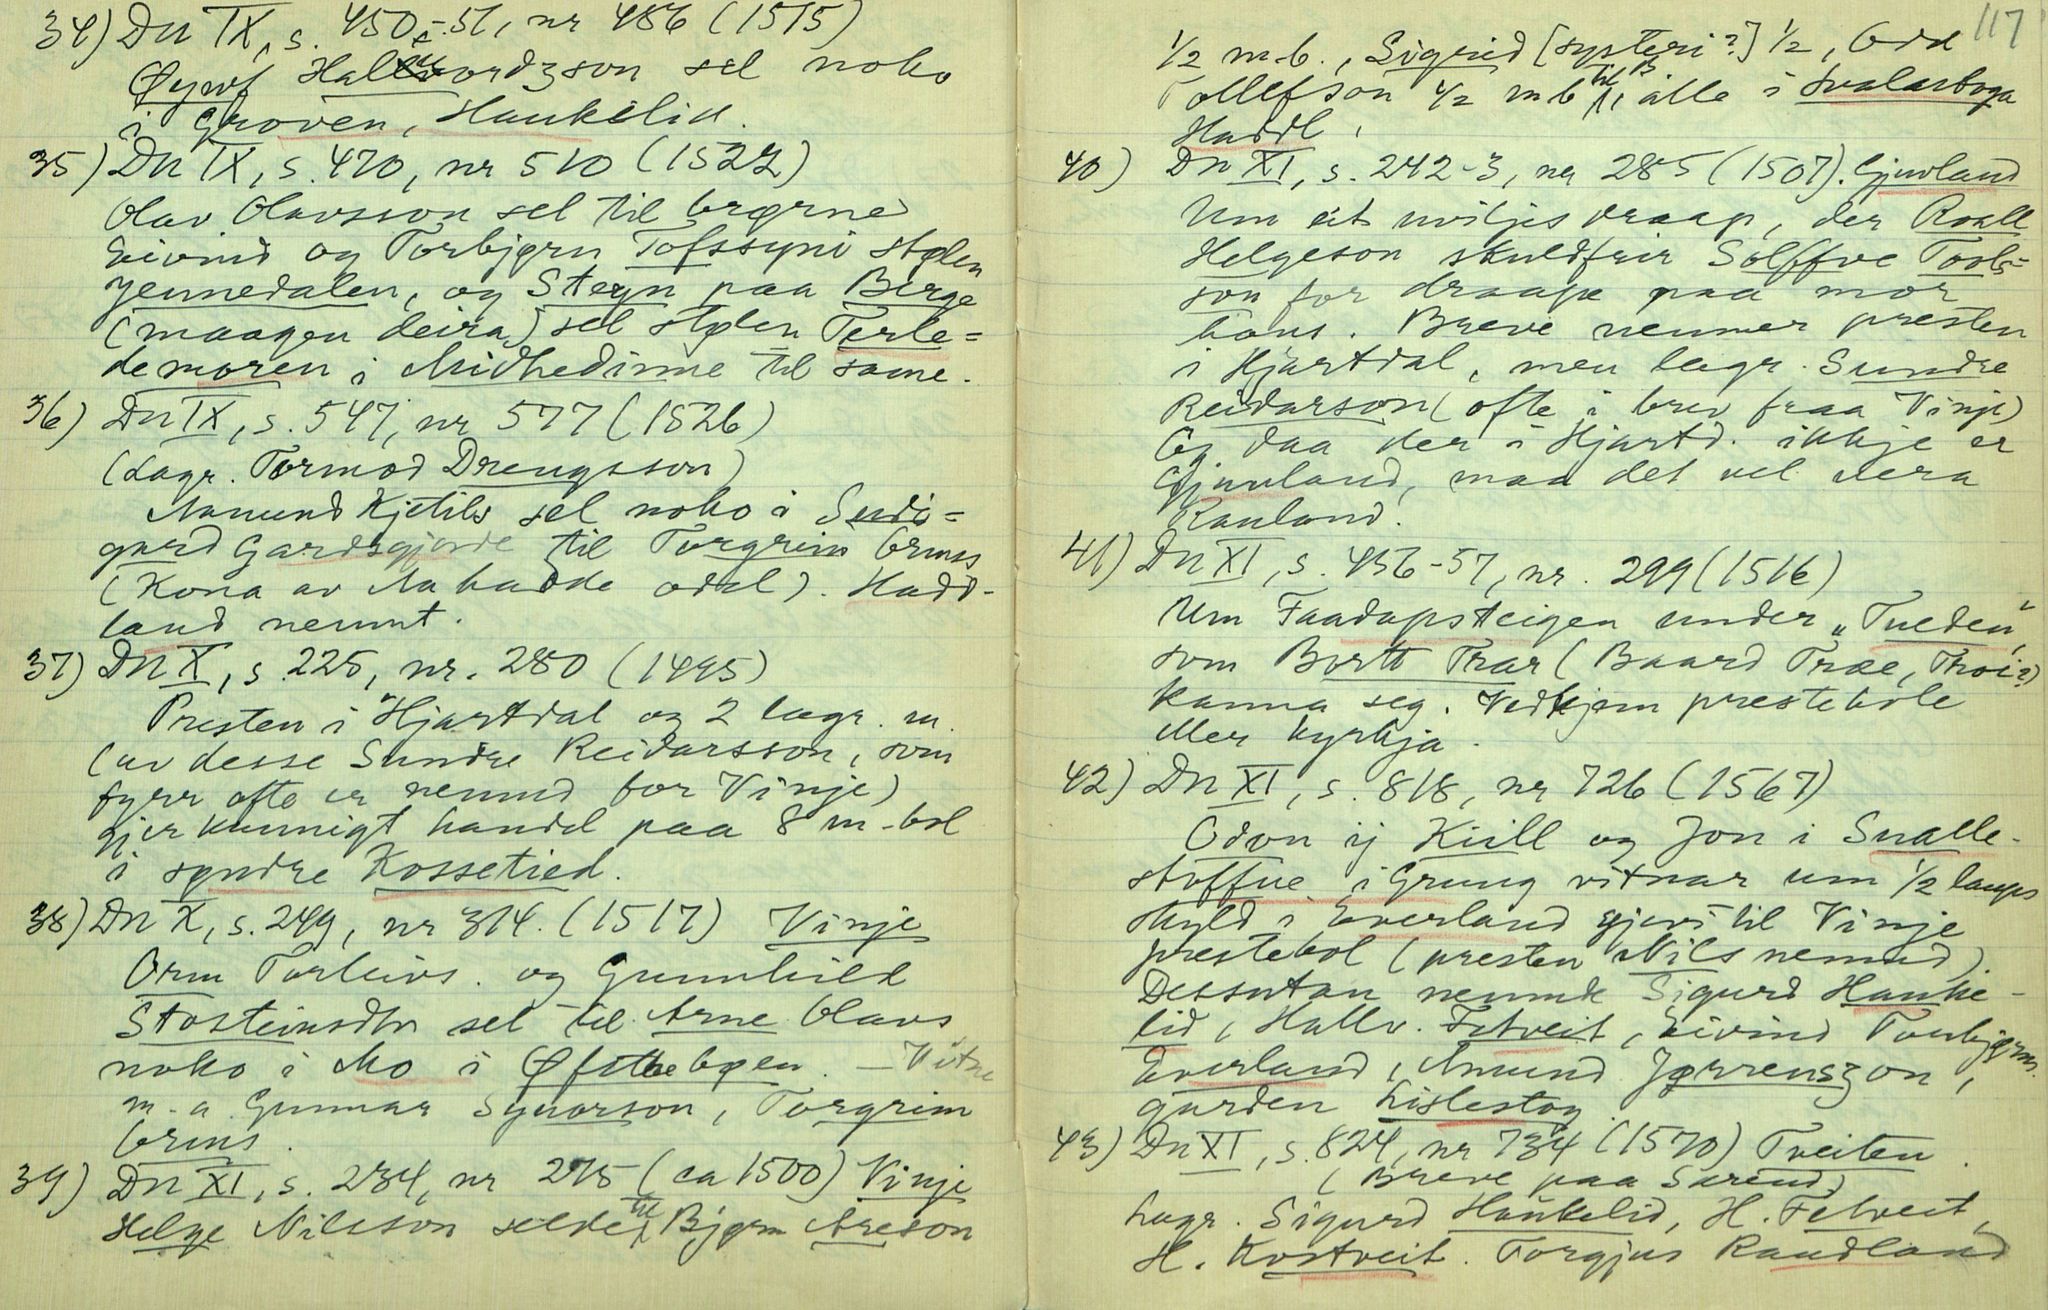 34) Dn IX, s. 450-51, nr 486 (1515)
Øyuf Hallvordzson sel noko
i Groven, Haukelid.
35) Dn IX, s. 470, nr 510 (1522)
Olav Olavsson sel til brørne
Eivind og Torbjørn Tofssyni stølen
Jennedalen, og Steyn paa Berge
(maagen deira) sel stølen Terle=
demoren i Midhedinne til same.
36) Dn IX, s. 547, nr 577 (1526)
(Lagr. Tormod Drengsson)
Aamund Kjetils sel noko i Sudi=
gard Gardsgjorde til Torgrim Orms
(Kona av Aa hadde odel). Hadd-
land nemnt.
37) Dn X, s. 225, nr. 280 (1495)
Presten i Hjartdal og 2 lagr. m.
(av desse Sundre Reidarsson, som
fyrr ofte er nemnd for Vinje)
gjer kunnigt handel paa 8 m-bol
i syndre Kossetied.
38) Dn X, s. 249, nr 314. (1517) Vinje
Orm Torleivs. og Gunnhild
Stosteinsdtr sel til Arne Olavs
noko i Mo i Øfstbebøen. — Vitne
m. a. Gunnar Syuorson, Torgrim
Orms.
39) Dn XI, s. 234, nr 275 (ca 1500) Vinje
Helge Nilsson selde til Bjørn Areson
117
1/2 m.b., Sigrid [systeri?] 1/2, Odd
Tollefson 1/2 m b til B, alle i Svalastoga
Haddl.
40) Dn XI, s. 242-3, nr 285 (1507). Gjuvland
Um eit uviljes draap, der Roall
Helgeson skuldfrir Solffve Tools=
son for draape paa mor
hans. Breve nemner presten
i Hjartdal, men lagr. Sundre
Reidarson (ofte i brev fraa Vinje)
Og daa der i Hjartd. ikkje er
Gjuvland, maa det vel vera
Rauland.
41) Dn XI, s. 456-57, nr. 299 (1516)
Um Faadøpsteigen under "Tueden",
som Bortt Trær (Baard Træe, Troi?)
kanna seg. Vedkjem prestebole
eller kyrkja.
42) Dn XI, s. 818, nr 726 (1567)
Odvn ij Kiill og Jon i Snalle-
stoffue i Grung vitnar um 1/2 laups
skyld i Everland gjevi til Vinje
prestebol (presten Nils nemnd).
Dessutan nemnde Sigurd Hauke-
lid, Hallv. Fetveit, Eivind Torbjørns.
Everland, Amund Jørrenszon,
garden Lislestog.
43) Dn XI, s. 824, nr 734 (1570) Tveiten.
(Breve paa Surend)
Lagr. Sigurd Haukelid, H. Fetveit,
H. Kostveit. Torgjus Raudland